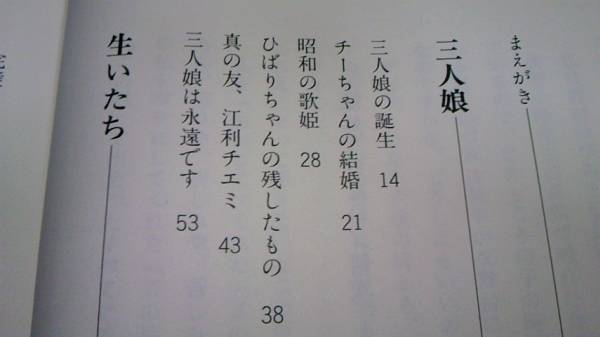 まえがき
三人娘
三人娘の誕生 14
チーちゃんの結婚 21
昭和の歌姫 28
ひばりちゃんの残したもの 38
真の友、江利チエミ 43
三人娘は永遠です 53
生いたち